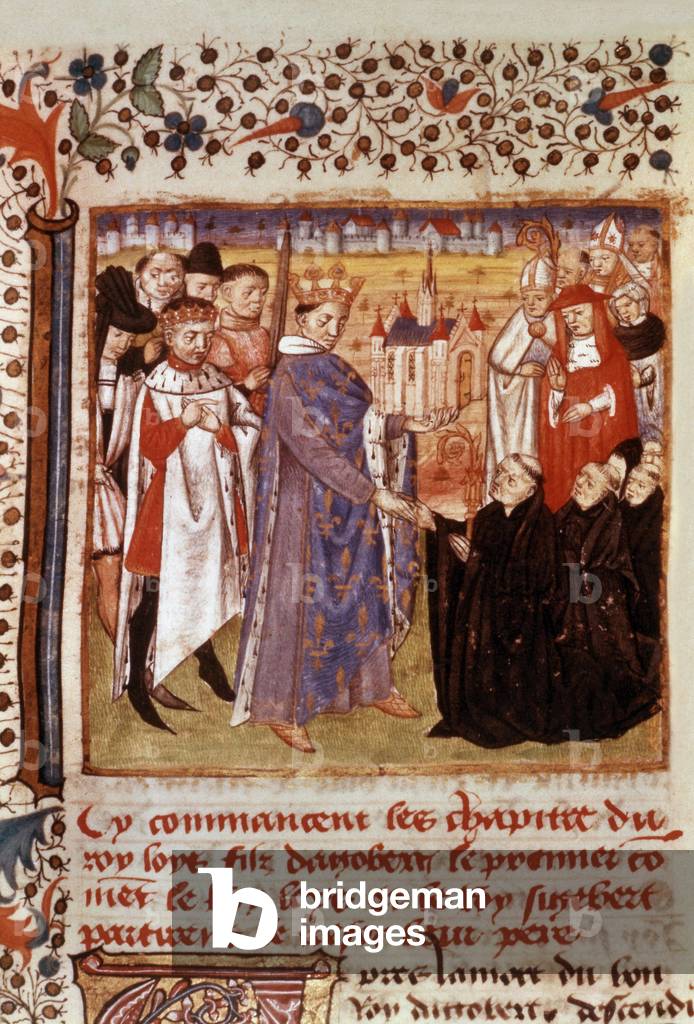 Cy commancent les chapitre du
roy loys filz dagobert le premier co
ment le roy sugibert
partirent leur pere
pres la mort du bon
Roy dagobert, descendi
bridgeman
images